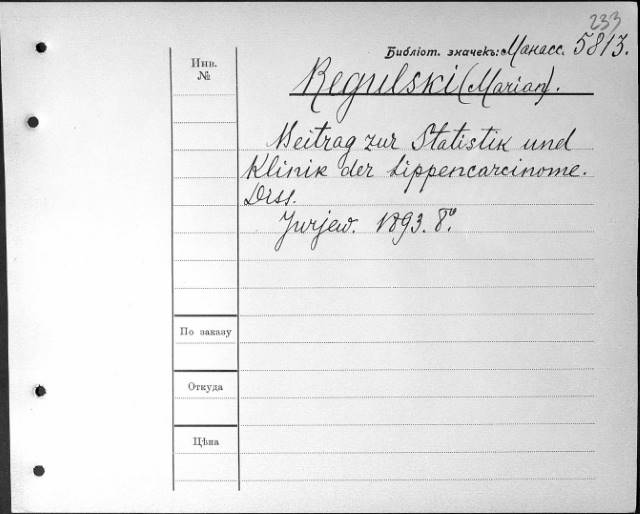 233
Библіот. значекъ: Манасс. 5813.
Инв.
№
Regulski (Marian).
Beitrag zur Statistik und
Klinik der Lippencarcinome.
Diss.
Jurjew. 1893. 8º.
По заказу
Откуда
Цѣна